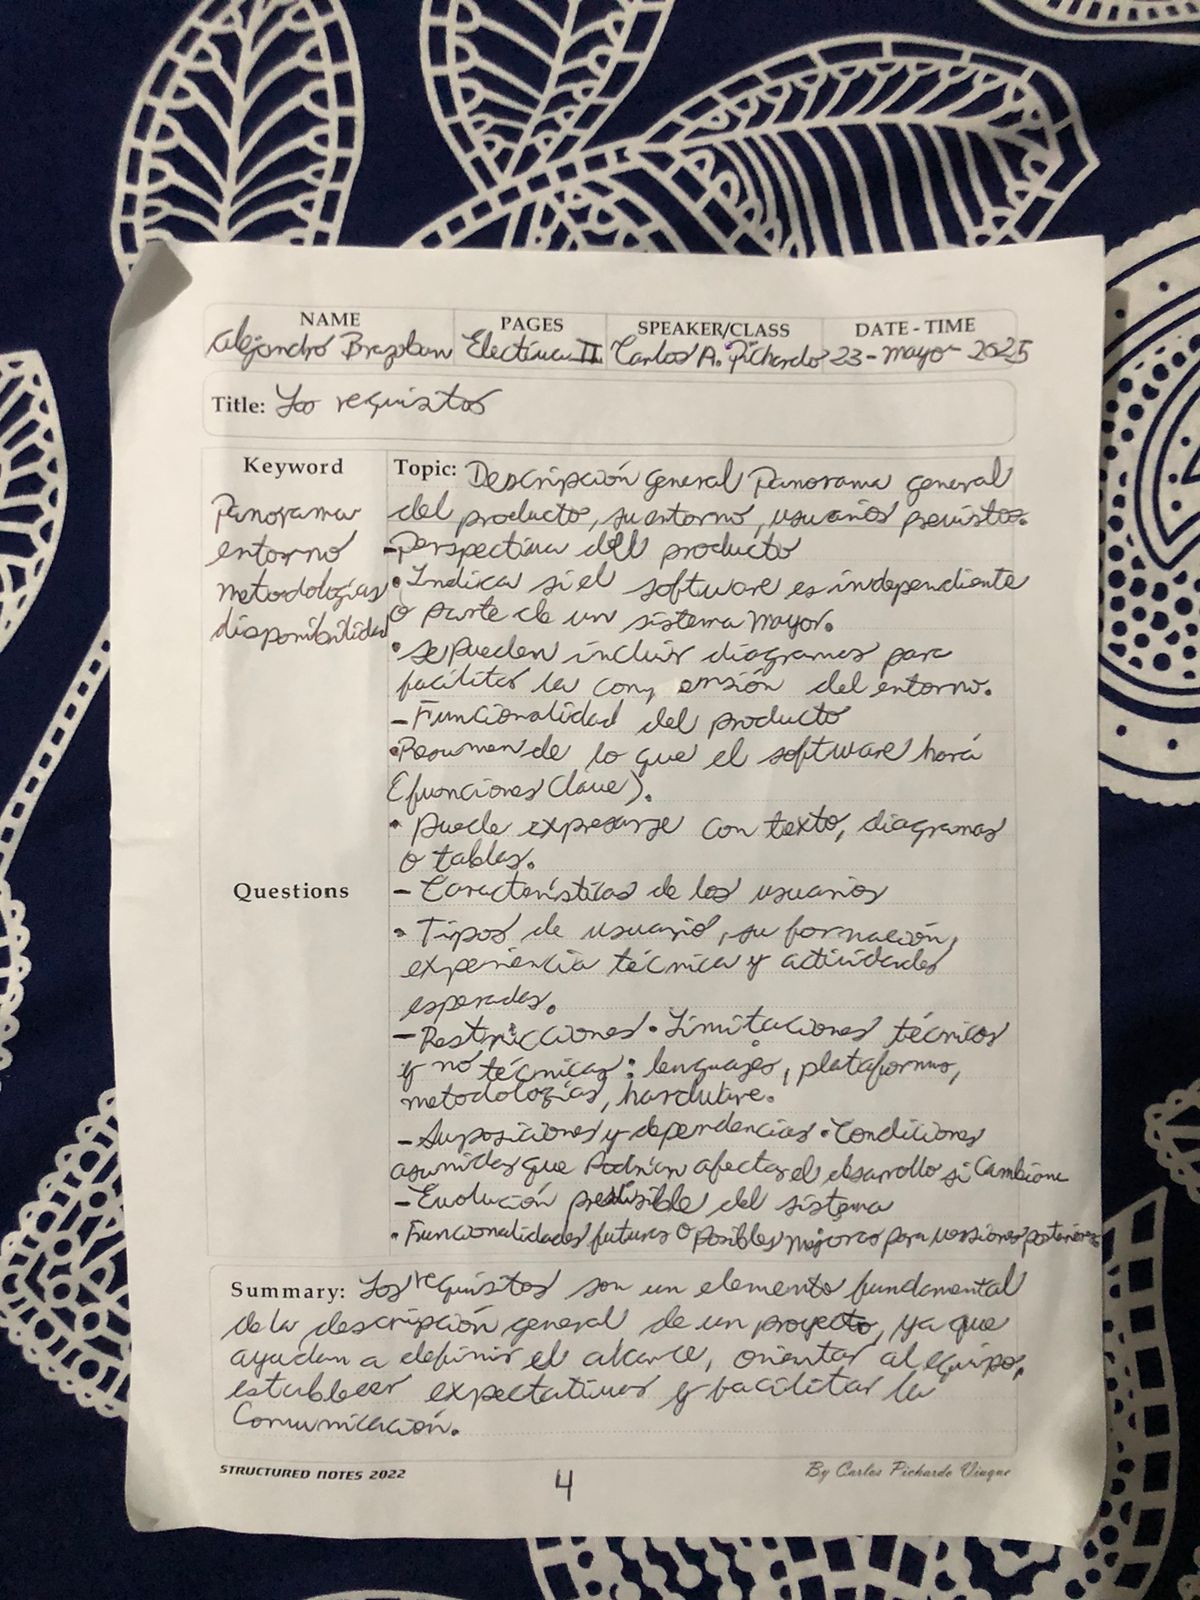 NAME PAGES SPEAKER/CLASS DATE - TIME
Alejandro Brazoban Electiva II Carlos A. Pichardo 23-mayo-2025
Title: Los requisitos
Keyword
Panorama
entorno
metodologías
disponibilidad
Topic: Descripción general Panorama general
del producto, su entorno, usuarios previstos.
- Perspectiva del producto
• Indica si el software es independiente
o parte de un sistema mayor.
• se pueden incluir diagramas para
facilitar la comprensión del entorno.
- Funcionalidad del producto
• Resumen de lo que el software hará
(funciones clave).
• puede expresarse con texto, diagramas
o tablas.
Questions
- Características de los usuarios
• Tipos de usuario, su formación,
experiencia técnica y actividades
esperadas.
- Restricciones • Limitaciones técnicas
y no técnicas: lenguajes, plataformas,
metodologías, hardware.
- Suposiciones y dependencias • Condiciones
asumidas que Podrían afectar el desarrollo si Cambian
- Evolución previsible del sistema
• Funcionalidades futuras o posibles mejoras para versiones posteriores
Summary: Los requisitos son un elemento fundamental
de la descripción general de un proyecto, ya que
ayudan a definir el alcance, orientar al equipo,
establecer expectativas y facilitar la
Comunicación.
STRUCTURED NOTES 2022 4 By Carlos Pichardo Viuque